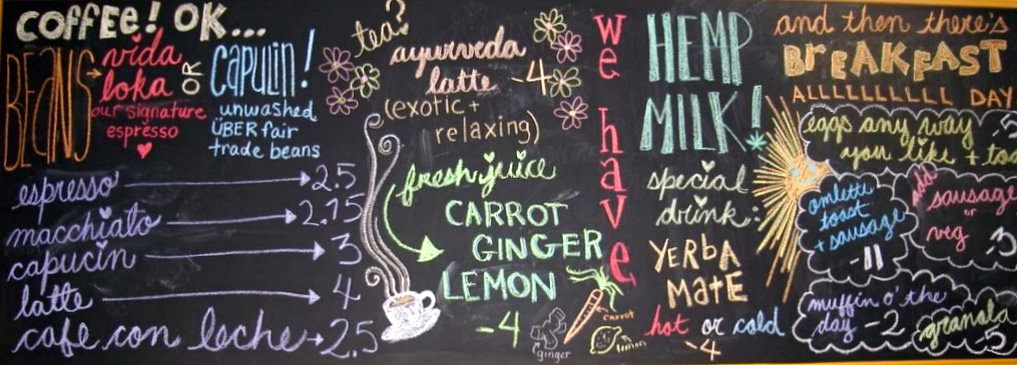 COFFEE! OK...
BEANS → vida
loka
our signature
espresso
OR
CAPULIN!
unwashed
ÜBER fair
trade beans
espresso → 2.5
macchiato → 2.75
capucin → 3
latte → 4
cafe con leche → 2.5
tea?
ayurveda
latte - 4
(exotic +
relaxing)
fresh juice
CARROT
GINGER
LEMON
- 4
carrot
ginger
lemon
we have
HEMP
MILK!
special
drink:
YERBA
MATE
hot or cold
- 4
and then there's
BREAKFAST
ALLLLLLLLL DAY
eggs any way
you like +
omlette
toast
+ sausage
- 11
add
sausage
or
veg .3
muffin o' the
day - 2
granola
5